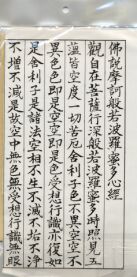 佛說摩訶般若波羅蜜多心經
觀自在菩薩行深般若波羅蜜多時照見五
蘊皆空度一切苦厄舍利子色不異空空不
異色色即是空空即是色受想行識亦復如
是舍利子是諸法空相不生不滅不垢不淨
不增不減是故空中無色無受想行識無眼